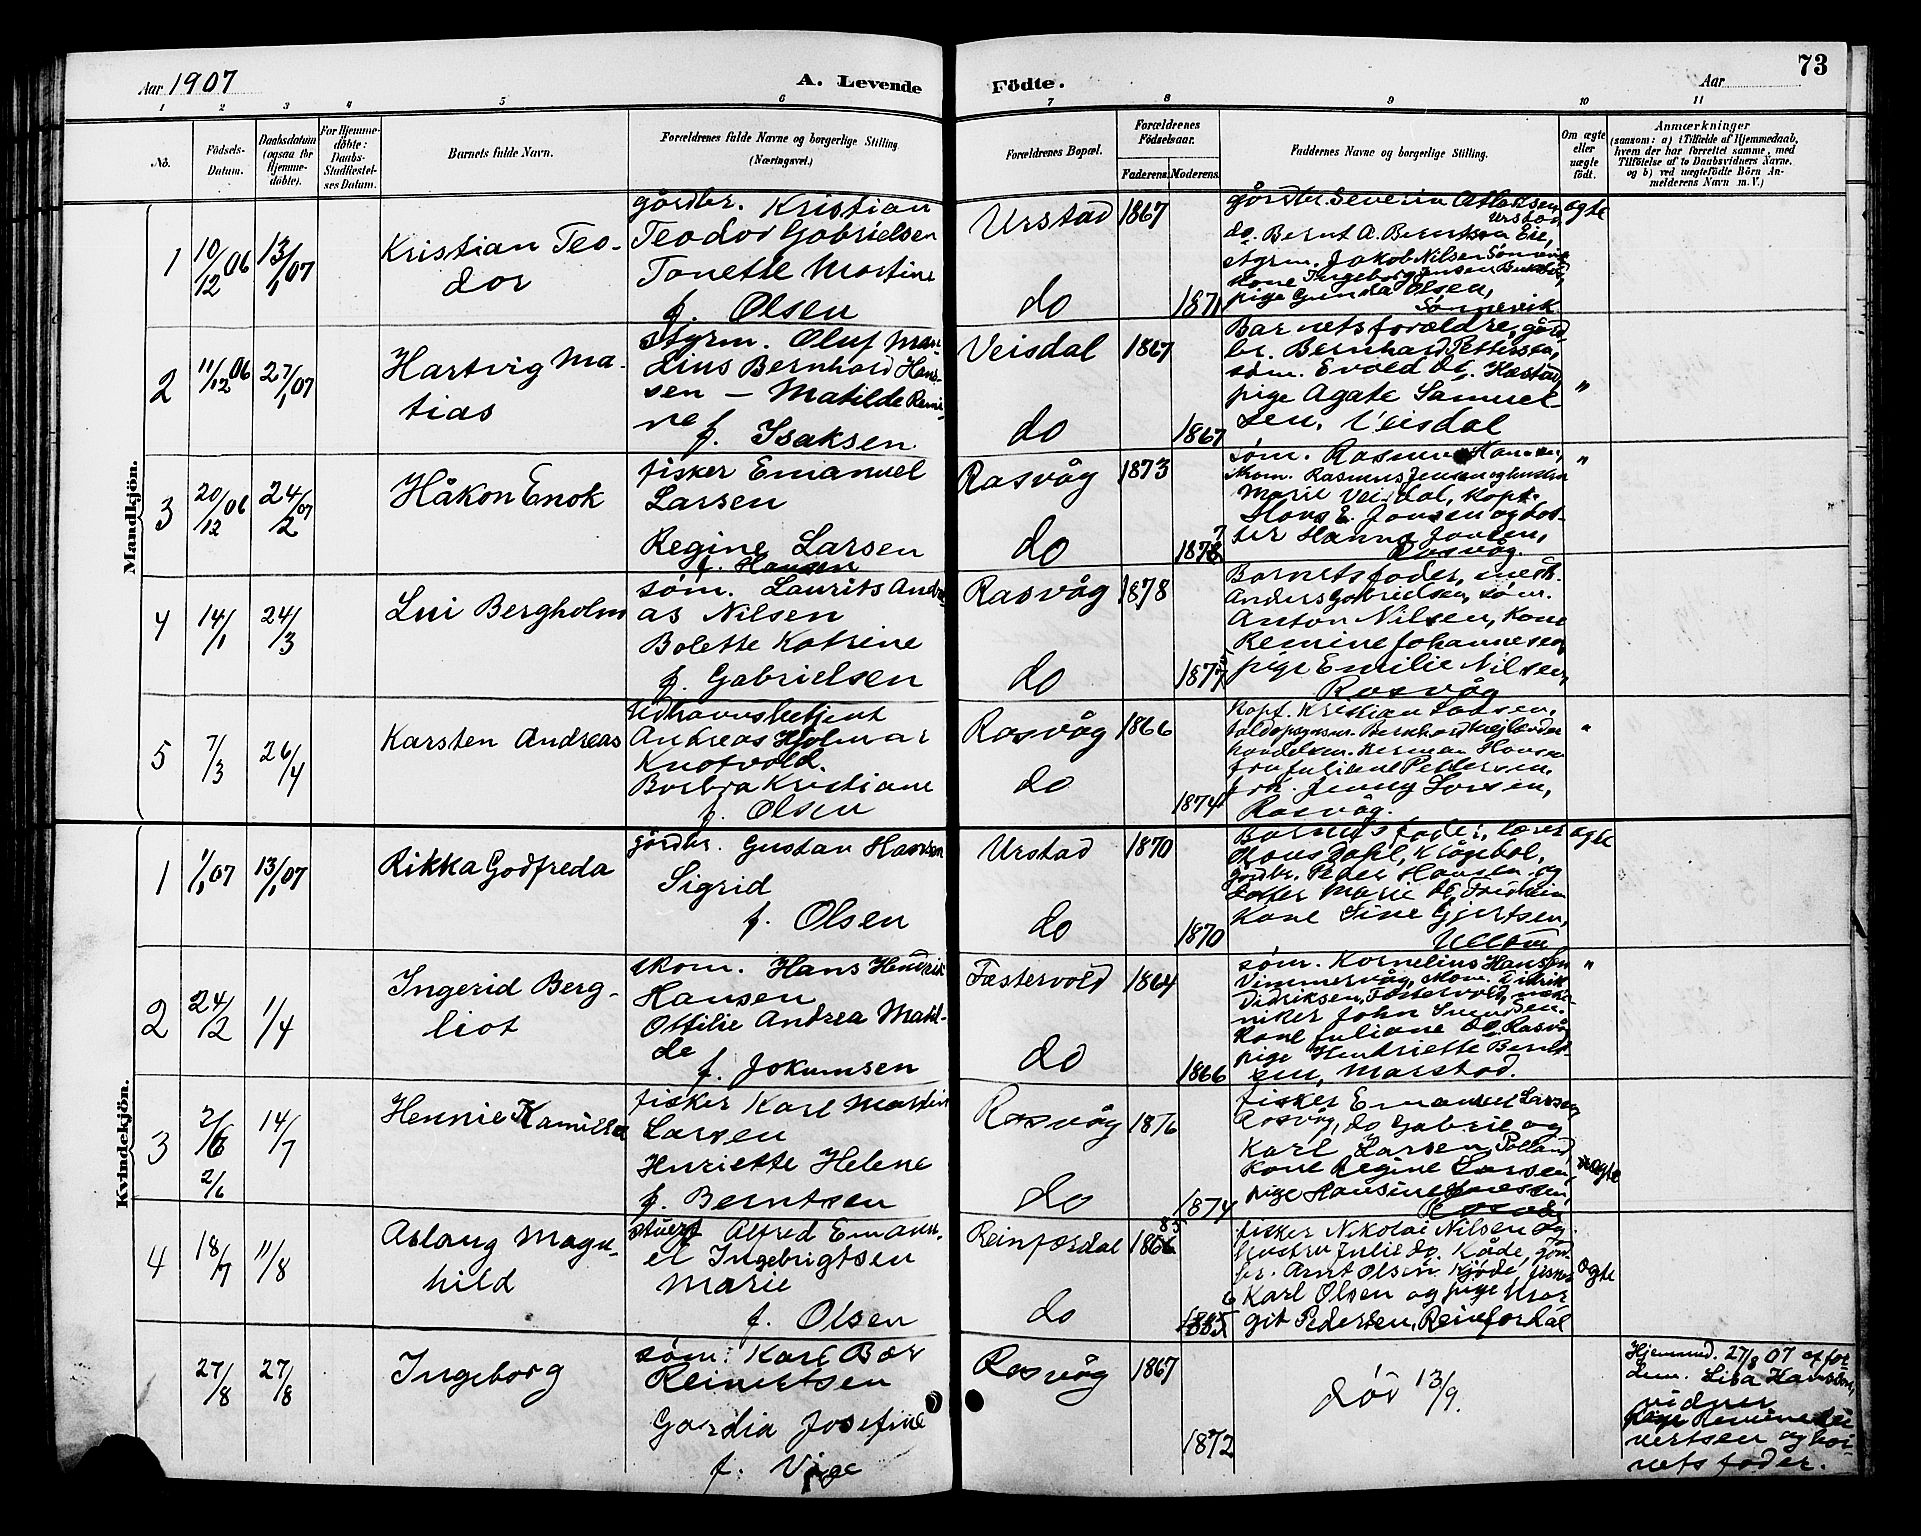 Aar 1907
A. Levende
Födte.
Aar
73
1 2 3 4 5 6 7 8 9 10 11
No.
Födsels-Datum.
Daabsdatum (ogsaa for Hjemme-döbte).
For Hjemme-döbte: Daabs-Stadfæstel-ses Datum.
Barnets fulde Navn.
Forældrenes fulde Navne og borgerlige Stilling. (Næringsvei.)
Forældrenes Bopæl.
Forældrenes Födselsaar.
Faderens. Moderens.
Faddernes Navne og borgerlige Stilling.
Om ægte eller uægte födt.
Anmærkninger
(saasom: a) i Tilfælde af Hjemmedaab, hvem der har forrettet samme, med Tilföielse af to Daabsvidners Navne. og b) ved uægtefödte Börn Anmelderens Navn m. V.)
Mandkjön.
1
10/12 06
13/1 07
Kristian Teo-
dor
gårdbr. Kristian
Teodor Gabrielsen
Tonette Martine
f. Olsen
Urstad
do
1867
1871
gårdbr. Severin Atlaksen
Urstad,
do. Bernt A. Berntsen Eie,
styrm. Jakob Nilsen
kone Ingeborg Jensen
pige Gunda Olsen,
ægte
2
11/12 06
27/1 07
Hartvig Ma-
tias
Styrm. Oluf Mari
dius Bernhard Han-
sen — Matilde Remi-
ne f. Isaksen
Veisdal
do
1867
1867
Barnets forældre, gård
br. Bernhard Pettersen,
søm. Evald do.
pige Agate Samuel
sen, Veisdal
"
3
20/12 06
24/2 07
Håkon Enok
fisker Emanuel
Larsen
Regine Larsen
f. Hansen
Rasvåg
do
1873
1878 7
søm. Rasmus Hansen,
skom. Rasmus Jensen og hustru
Marie Veisdal, kapt.
Hans E. Jansen og dat-
ter Hanna Jansen,
Rasvåg.
"
4
14/1
24/3
Lui Bergholm
søm. Laurits Andre
as Nilsen
Bolette Katrine
f. Gabrielsen
Rasvåg
do
1878
1877
Barnets fader, mesk.
Anders Gabrielsen, søm.
Anton Nilsen, kone
Remine Johannesen
pige Emilie Nilsen,
Rasvåg
5
7/3
26/4
Karsten Andreas
Udhavnsbetjent
Andreas Hjalmar
Knatvold.
Barbra Kristiane
f. Olsen
Rasvåg
do
1866
1874
Kapt. Kristian Larsen,
toldopsynsm. Bernhard
handelsm. Herman Hansen
fru Juliane Pettersen,
frk. Jenny Larsen,
Rasvåg.
"
Kvindekjön.
1
1/1 07
13/1 07
Rikka Godfreda
gårdbr. Gustav Hansen
Sigrid
f. Olsen
Urstad
do
1870
1870
Barnets fader, lærer
Hans Dahl, Klågebol,
gårdbr. Peder Hansen og
datter Marie do,
kone Sine Gjertsen,
ægte
2
24/2
1/4
Ingerid Berg-
liot
skom. Hans Hendrik
Hansen
Ottilie Andrea Matil-
de
f. Jokumsen
Fæstervold
do
1864
1866
søm. Kornelius Hansen
Vimmervåg, skom. Didrik
Didriksen, Fæstervold, meka-
niker John Svendsen.
kone Juliane do, Rasvåg
pige Henriette Bernt-
sen, Marstad.
"
3
2/6
2/6
14/7
Hennie Kamilla
fisker Karl Martin
Larsen
Henriette Helene
f. Berntsen
Rasvåg
do
1876
1874
fisker Emanuel Larsen
Rasvåg, do Gabriel og
Karl Larsen Polland
kone Regine Larsen,
pige Hansine
Rasvåg
ægte
4
18/7
11/8
Aslaug Magn-
hild
stuert Alfred Emanu-
el Ingebrigtsen
Marie
f. Olsen
Reinfordal
do
1866 85
1885 6
fisker Nikolai Nilsen og
hustru Julie do. Kåde, gård
br. Arnt Olsen Kjøde, fisker
Karl Olsen og pige Mar
git Pedersen, Reinfordal
ægte
27/8
27/8
Ingeborg
søm. Karl Bær
Reinertsen
Gardia Josefine
f. Vige
Rasvåg
1867
1872
død 13/9.
Hjemmed. 27/8 07 af jor
dem. Lisa Hansen,
vidner
pige Remine Rei
nertsen og bar-
nets fader.